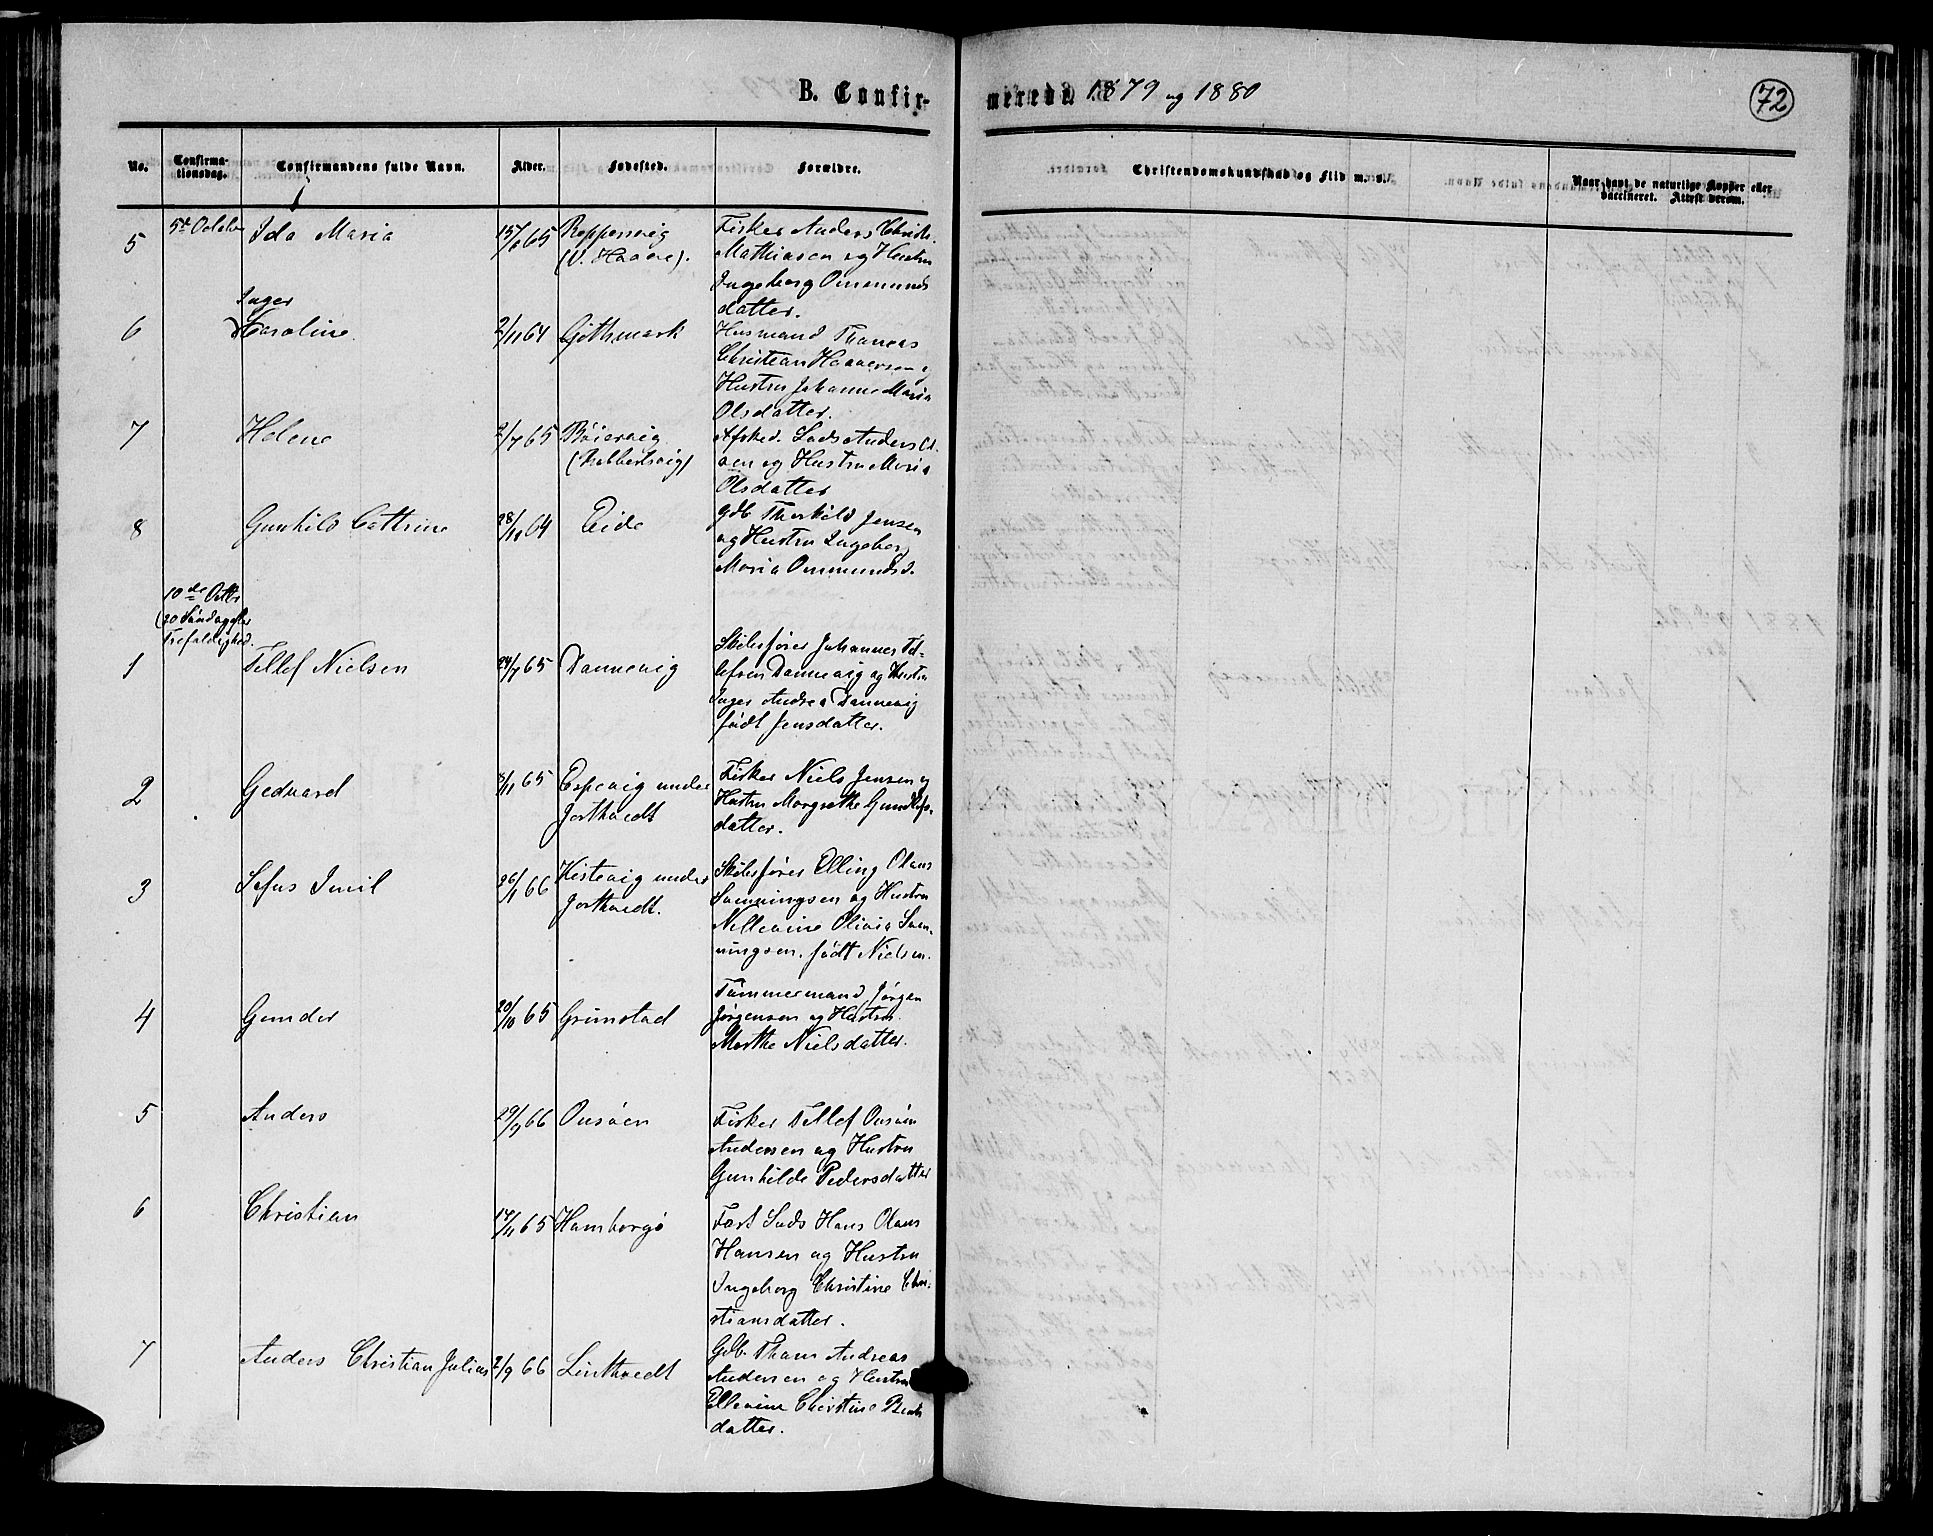 B. Confir-
merede 1879 og 1880
72
No. Confirma-tionsdag. Confirmandens fulde Navn. Alder. Fødested. Forældre. Christendomskundskab og Flid m. v. Naar havt de naturlige Kopper eller vaccineret. Attest derom.
5 5te October Ida Maria 15/6 65 Roppesvig Fisker Anders Christ.
(V. Haave). Mathiasen og Hustru
Ingeborg Ommunds
datter.
Inger
6 Karoline 2/11 64 Gjethmark Husmand Thomas
Christian Haaversen og
Hustru Johanne Maria
Olsdatter.
7 Helene 2/7 65 Bøiervig Afsked. Lods Anders Ol
(Rebbesvig) sen og Hustru Maria
Olsdatter
8 Gunhild Cathrine 28/11 64 Eide gdb. Thorkild Jensen
og Hustru Ingeborg
Maria Ommundsd.
10de Octbr
(20 Søndag efter
Trefoldighed.
1 Tellef Nielsen 24/7 65 Dannevig Skibsfører Johannes Tel-
lefsen Dannevig og Hustru
Inger Andrea Dannevig
født Jensdatter.
2 Gedvard 3/11 65 Espevig under Fisker Niels Jensen og
Jortveidt Hustru Margrethe Gundlefs-
datter.
3 Sefus Imil 26/1 66 Kistevig under Skibsfører Elling Olaus
Jortveidt. Sveningsen og Hustru
Nillevine Olivia Sven-
ningsen. født Nielsen.
4 Gunder 20/10 65 Grimstad Tømmermand Jørgen
Jørgensen og Hustru
Marthe Nielsdatter.
5 Anders 29/9 66 Ousøen Fisker Tellef Ousøen
Andersen og Hustru
Gunhilde Pedersdatter
6 Christian 14/11 65 Hamborgø Fast Lods Hans Olaus
Hansen og Hustru
Ingeborg Christine Chri-
stiansdatter.
7 Anders Christian Julius 2/9 66 Lintveidt Gdb. Thom Andreas
Andersen og Hustru
Ellevine Christine Bents
datter.